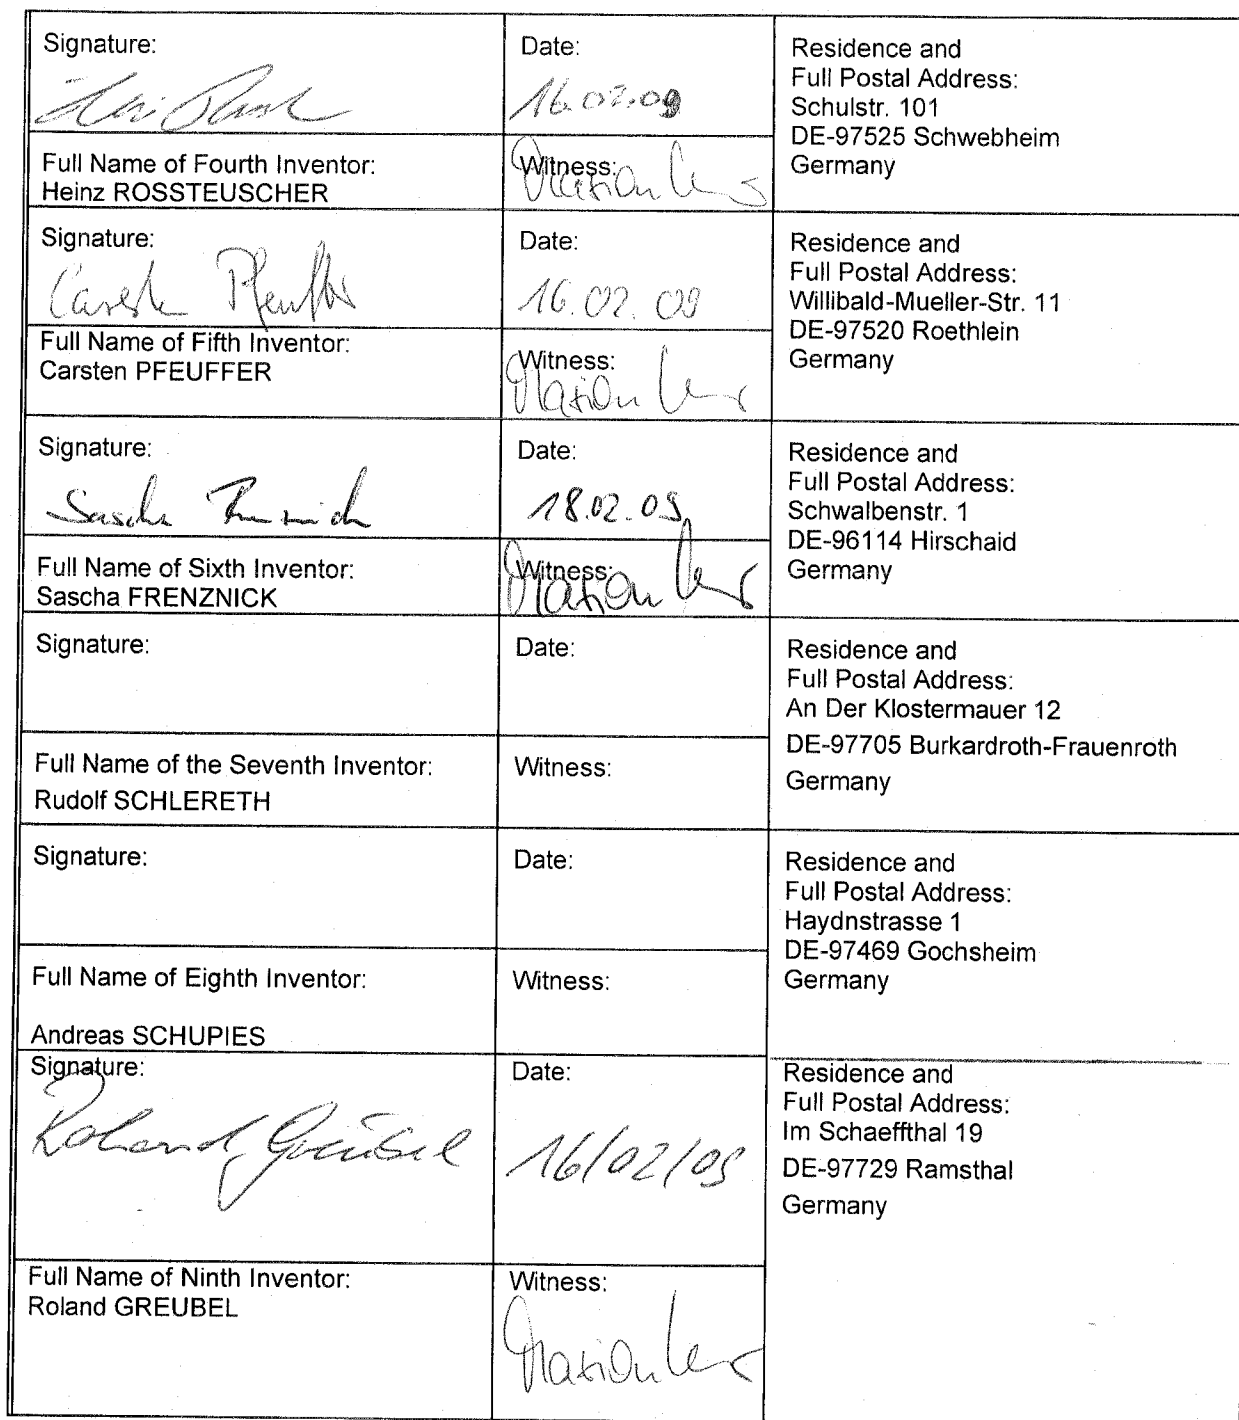 Signature:
Date:
16.02.09
Residence and
Full Postal Address:
Schulstr. 101
DE-97525 Schwebheim
Germany
Full Name of Fourth Inventor:
Heinz ROSSTEUSCHER
Witness:
Marion
Signature:
Carsten Pfeuffer
Date:
16.02.09
Residence and
Full Postal Address:
Willibald-Mueller-Str. 11
DE-97520 Roethlein
Germany
Full Name of Fifth Inventor:
Carsten PFEUFFER
Witness:
Marion
Signature:
Sascha
Date:
18.02.09
Residence and
Full Postal Address:
Schwalbenstr. 1
DE-96114 Hirschaid
Germany
Full Name of Sixth Inventor:
Sascha FRENZNICK
Witness:
Marion
Signature:
Date:
Residence and
Full Postal Address:
An Der Klostermauer 12
DE-97705 Burkardroth-Frauenroth
Germany
Full Name of the Seventh Inventor:
Rudolf SCHLERETH
Witness:
Signature:
Date:
Residence and
Full Postal Address:
Haydnstrasse 1
DE-97469 Gochsheim
Germany
Full Name of Eighth Inventor:
Andreas SCHUPIES
Witness:
Signature:
Roland Greubel
Date:
16/02/09
Residence and
Full Postal Address:
Im Schaeffthal 19
DE-97729 Ramsthal
Germany
Full Name of Ninth Inventor:
Roland GREUBEL
Witness:
Marion